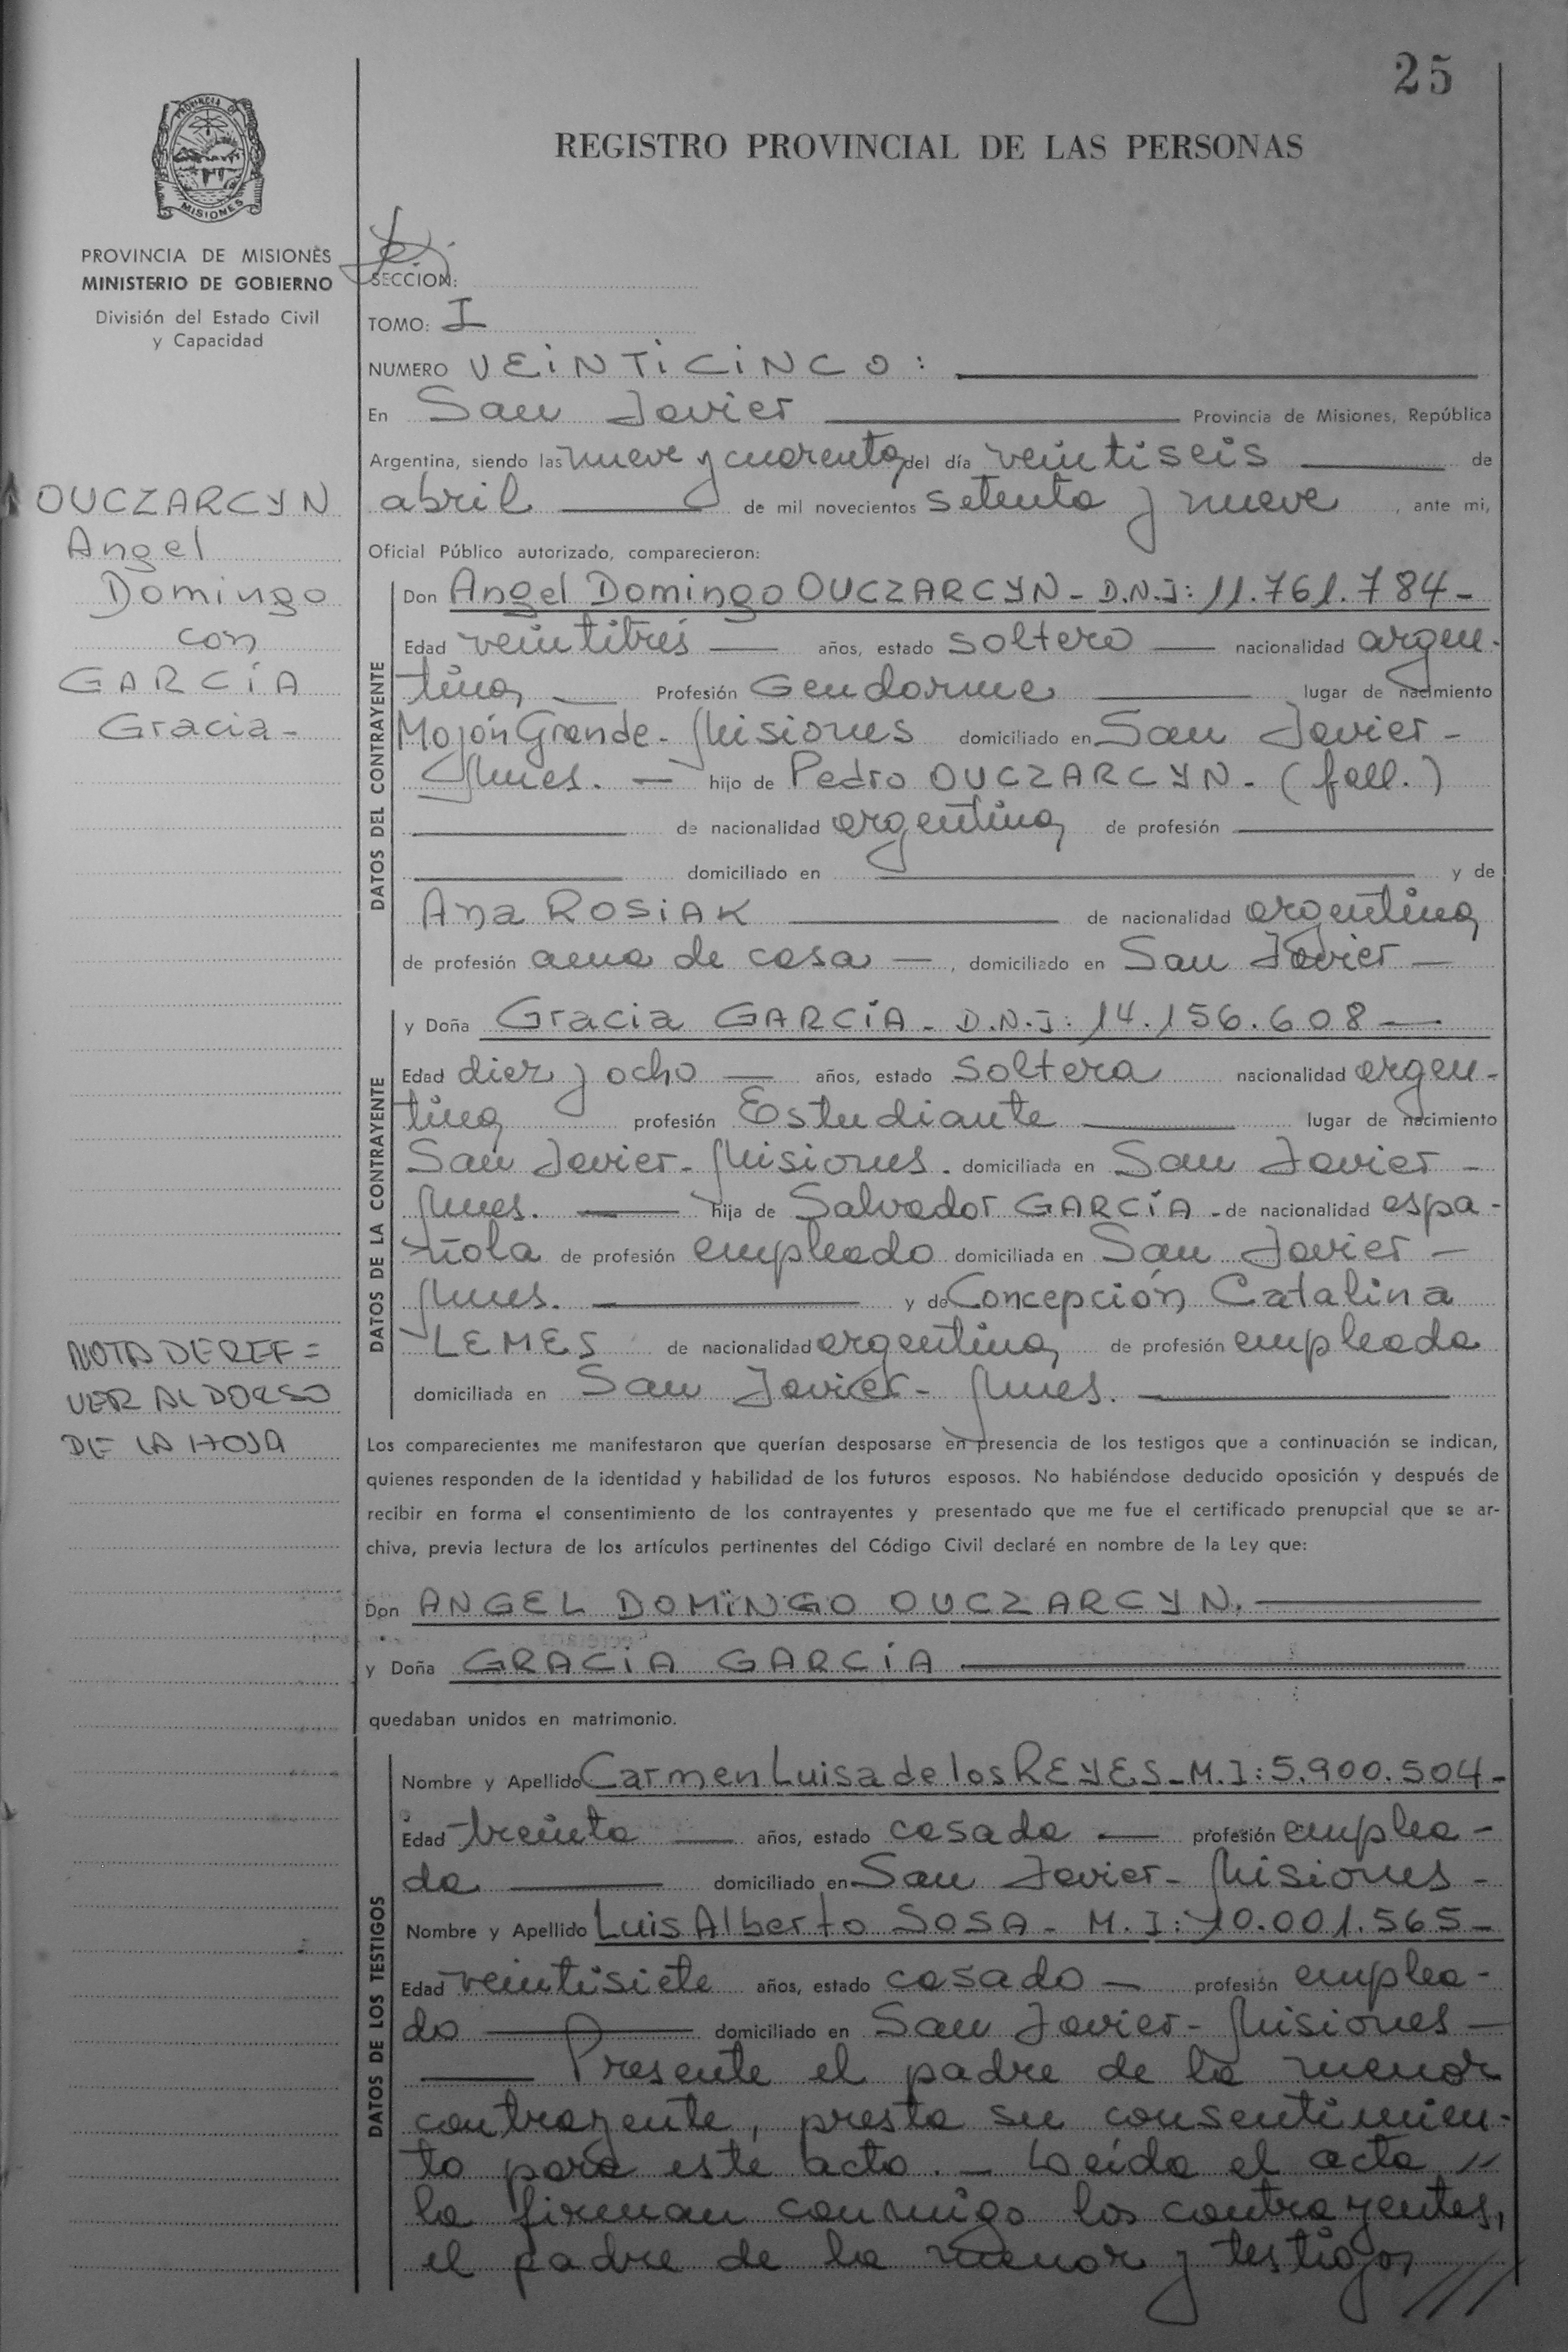 25
REGISTRO PROVINCIAL DE LAS PERSONAS
PROVINCIA DE
MISIONES
PROVINCIA DE MISIONES
MINISTERIO DE GOBIERNO
División del Estado Civil
y Capacidad
SECCION:
TOMO: I
NUMERO VEINTICINCO:
En San Javier Provincia de Misiones, República
Argentina, siendo las nueve y cuarenta del día veintiseis de
abril de mil novecientos setenta y nueve, ante mi,
Oficial Público autorizado, comparecieron:
OUCZARCYN
Angel
Domingo
con
GARCÍA
Gracia-
DATOS DEL CONTRAYENTE
Don Angel Domingo OUCZARCYN - D.N.I: 11.761.784-
Edad veintitrés — años, estado soltero — nacionalidad argen-
tina — Profesión Gendarme lugar de nacimiento
Mojón Grande - Misiones domiciliado en San Javier -
Mnes. — hijo de Pedro OUCZARCYN - (fall.)
de nacionalidad argentina de profesión
domiciliado en y de
Ana ROSIAK de nacionalidad argentina
de profesión ama de casa —, domiciliado en San Javier —
DATOS DE LA CONTRAYENTE
y Doña Gracia GARCÍA - D.N.I: 14.156.608 —
Edad diez y ocho — años, estado soltera nacionalidad argen-
tina profesión Estudiante lugar de nacimiento
San Javier - Misiones. domiciliada en San Javier -
Mnes. — hija de Salvador GARCÍA - de nacionalidad espa-
ñola de profesión empleado domiciliada en San Javier -
Mnes. y de Concepción Catalina
LEMES de nacionalidad argentina de profesión empleada
domiciliada en San Javier - Mnes.
NOTA DE REF =
VER AL DORSO
DE LA HOJA
Los comparecientes me manifestaron que querían desposarse en presencia de los testigos que a continuación se indican,
quienes responden de la identidad y habilidad de los futuros esposos. No habiéndose deducido oposición y después de
recibir en forma el consentimiento de los contrayentes y presentado que me fue el certificado prenupcial que se ar-
chiva, previa lectura de los artículos pertinentes del Código Civil declaré en nombre de la Ley que:
Don ANGEL DOMINGO OUCZARCYN.
y Doña GRACIA GARCÍA
quedaban unidos en matrimonio.
DATOS DE LOS TESTIGOS
Nombre y Apellido Carmen Luisa de los REYES - M.I: 5.900.504-
Edad treinta — años, estado casada — profesión emplea-
da — domiciliado en San Javier - Misiones -
Nombre y Apellido Luis Alberto SOSA - M.I: 10.001.565-
Edad veintisiete años, estado casado — profesión emplea-
do — domiciliado en San Javier - Misiones —
— Presente el padre de la menor
contrayente, presta su consentimien-
to para este acto. — Leída el acta //
la firman conmigo los contrayentes,
el padre de la menor y testigos ///